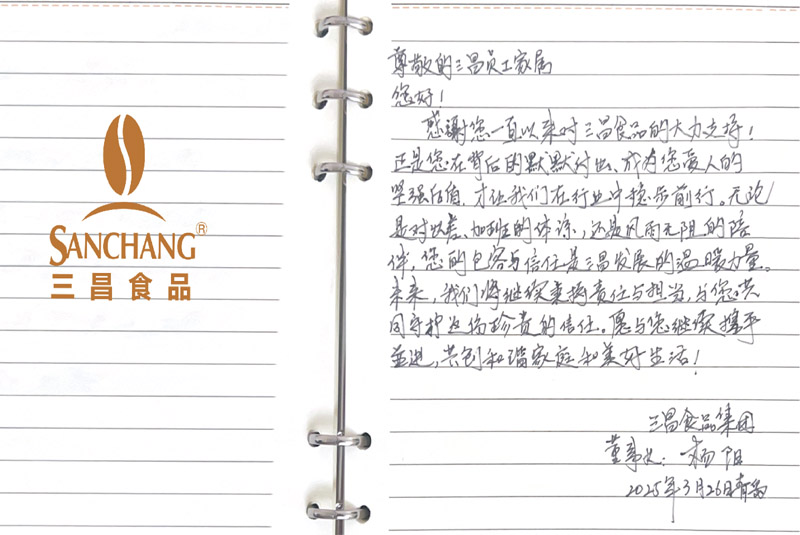 SANCHANG®
三昌食品
尊敬的三昌员工家属
您好!
感谢您一直以来对三昌食品的大力支持!
正是您在背后的默默付出、成为您爱人的
坚强后盾,才让我们在行业中稳步前行。无论
是对出差、加班的体谅,还是风雨无阻的陪
伴,您的包容与信任是三昌发展的温暖力量。
未来,我们将继续秉持责任与担当,与您共
同守护这份珍贵的信任。愿与您继续携手
并进,共创和谐家庭和美好生活!
三昌食品集团
董事长:杨阳
2025年3月26日